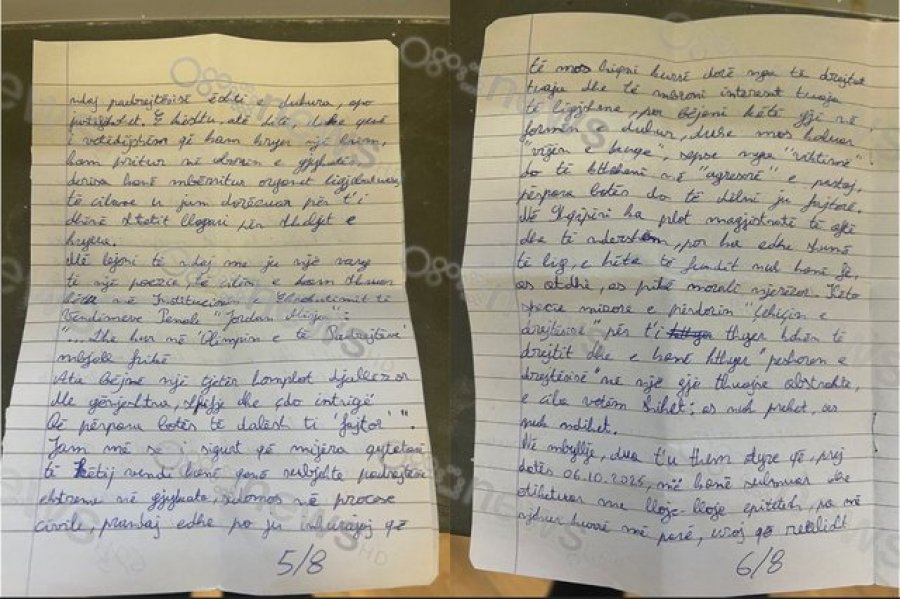 ndaj padrejtësisë është e duhura, apo
jo. E kështu, atë ditë, duke qenë
i vetëdijshëm që kam kryer një krim,
kam pritur në oborrin e gjykatës
derisa kanë mbërritur organet ligjzbatuese,
të cilave u jam dorëzuar për t'i
dhënë shtetit llogari për thedjet e
kryera.
Më lejoni të ndaj me ju një varg
të një poezie, të cilën e kam shkruar
këtu në Institucionin e Ekzekutimit të
Vendimeve Penale "Jordan Misja":
"...Dhe kur në 'Olimpin e të Padrejtëve'
mbjell frikë
Ata bëjnë një tjetër komplot djallëzor
Me gënjeshtra, shpifje dhe çdo intrigë
Që përpara botës të dalësh ti 'fajtor'".
Jam më se i sigurt që mijëra qytetarë
të këtij vendi kanë qenë subjekte padrejtësie
ekstreme në gjykata, sidomos në procese
civile, prandaj edhe po ju inkurajoj që
5/8
të mos hiqni kurrë dorë nga të drejtat
tuaja dhe të mbroni interesat tuaja
të ligjshme, por bëjeni këtë gjë në
formën e duhur, duke mos kaluar
"vijën e kuqe", sepse nga "viktimë"
do të ktheheni në "agresorë" e pastaj,
përpara botës do të dilni ju fajtorë.
Në Shqipëri ka plot magjistratë të aftë
dhe të ndershëm, por ka edhe shumë
të liq, e këta të fundit nuk kanë fe,
as atdhe, as pikë morali njerëzor. Këto
specie mizore e përdorin "çekiçin e
drejtësisë" për t'i thyer kokën të
drejtit dhe e kanë kthyer "peshoren e
drejtësisë" në një gjë thuajse abstrakte,
e cila vetëm shihet; as nuk preket, as
nuk ndihet.
Në mbyllje, dua t'u them atyre që, prej
datës 06.10.2025, më kanë sulmuar dhe
etiketuar me lloje-lloje epitetesh, pa më
njohur kurrë më parë, uroj që realisht
6/8